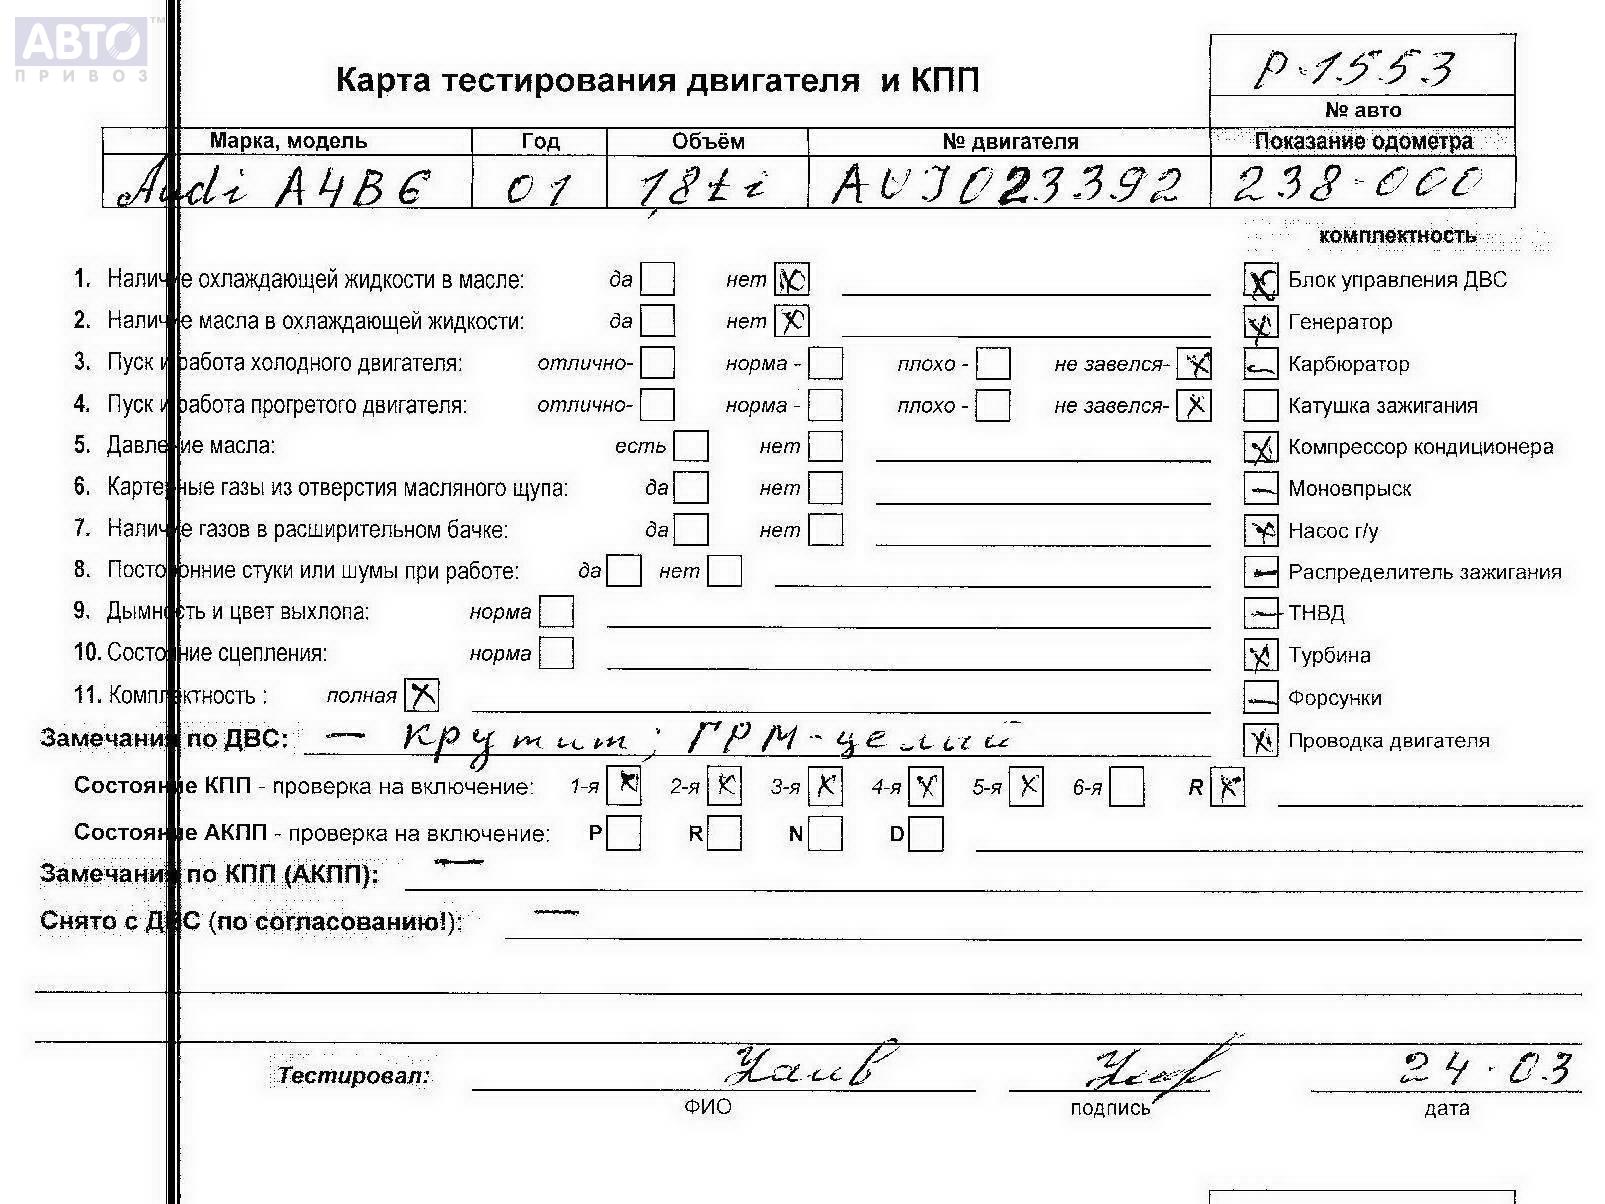 АВТО™
ПРИВОЗ
Карта тестирования двигателя и КПП
P-1553
№ авто
Марка, модель Год Объём № двигателя Показание одометра
Audi A4B6 01 1,8ti AVJ023392 238-000
комплектность
1. Наличие охлаждающей жидкости в масле: да нет Блок управления ДВС
2. Наличие масла в охлаждающей жидкости: да нет Генератор
3. Пуск и работа холодного двигателя: отлично- норма - плохо - не завелся- Карбюратор
4. Пуск и работа прогретого двигателя: отлично- норма - плохо - не завелся- Катушка зажигания
5. Давление масла: есть нет Компрессор кондиционера
6. Картерные газы из отверстия масляного щупа: да нет Моновпрыск
7. Наличие газов в расширительном бачке: да нет Насос г/у
8. Посторонние стуки или шумы при работе: да нет Распределитель зажигания
9. Дымность и цвет выхлопа: норма ТНВД
10. Состояние сцепления: норма Турбина
11. Комплектность : полная Форсунки
Замечания по ДВС: — крутит; ГРМ-целый Проводка двигателя
Состояние КПП - проверка на включение: 1-я 2-я 3-я 4-я 5-я 6-я R
Состояние АКПП - проверка на включение: P R N D
Замечания по КПП (АКПП): —
Снято с ДВС (по согласованию!): —
Тестировал: 24.03
ФИО подпись дата